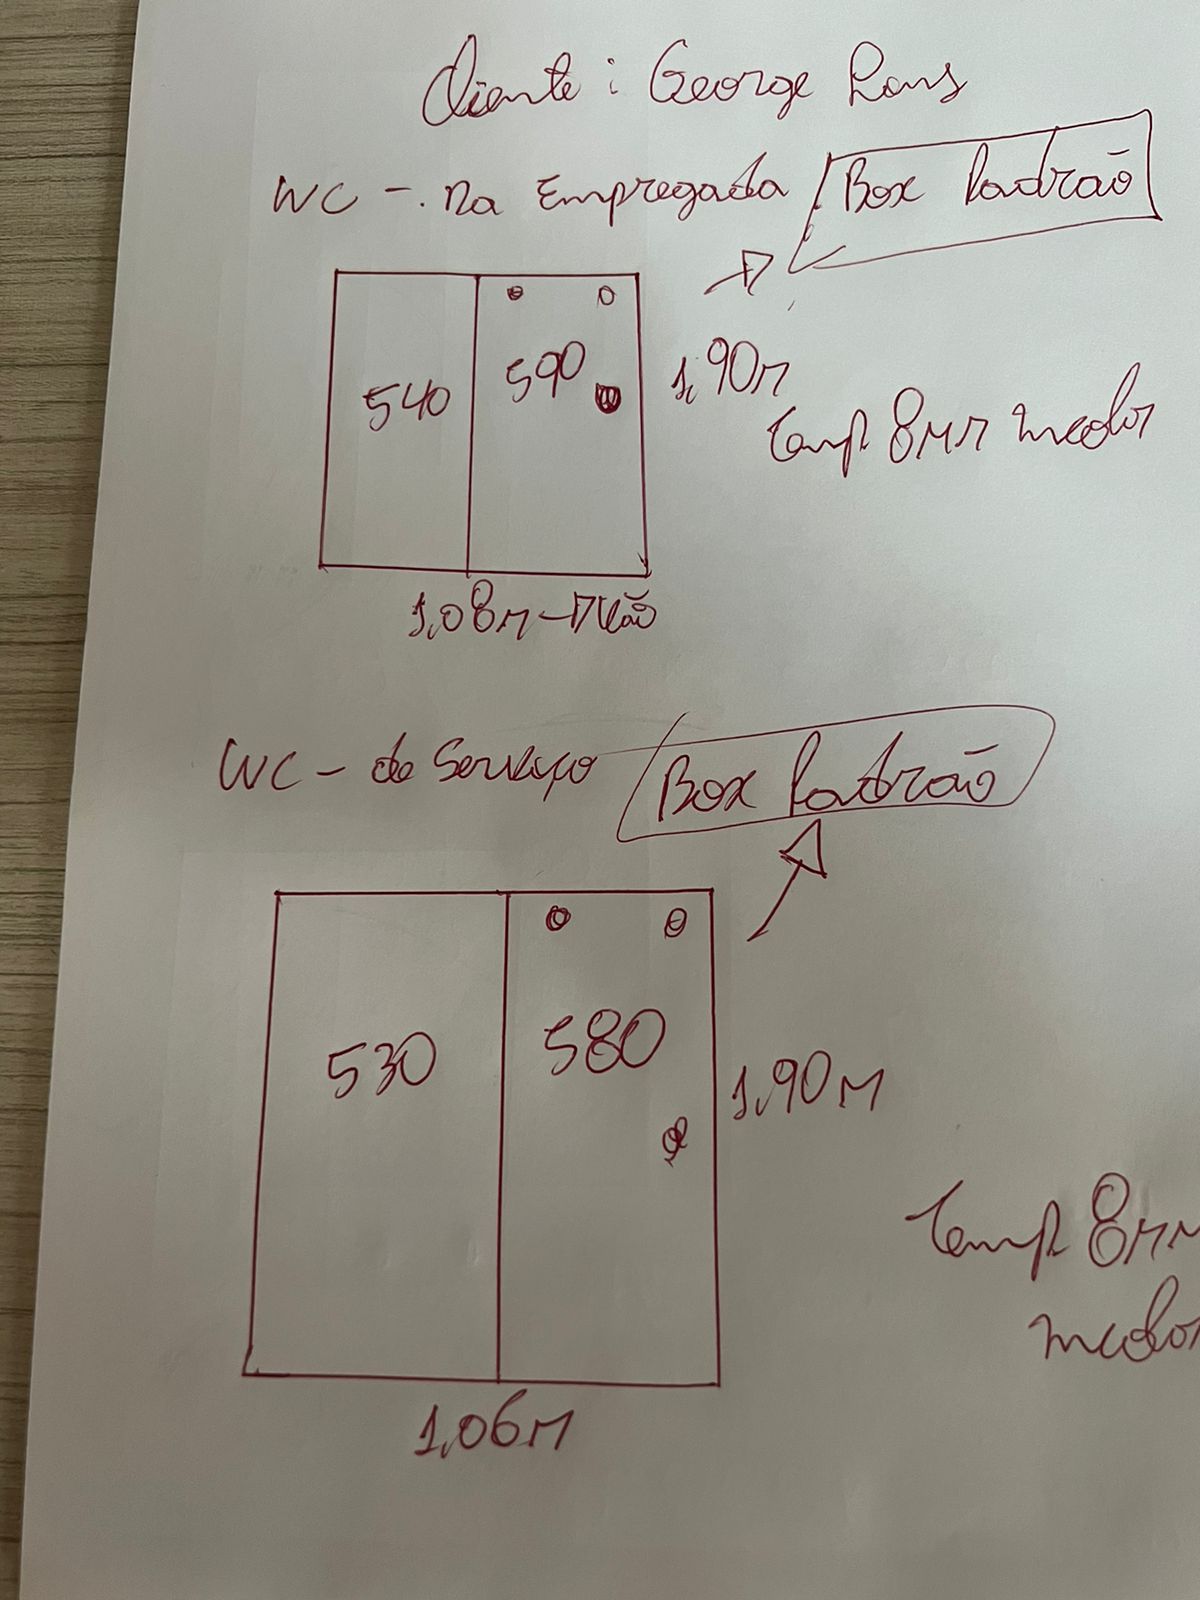 Cliente: George Lans
WC - Da Empregada Box Padrão
540 590 1,90m
Temp 8mm incolor
1,08m - Vão
WC - de Serviço Box Padrão
530 580 1,90m
Temp 8mm
incolor
1,06m